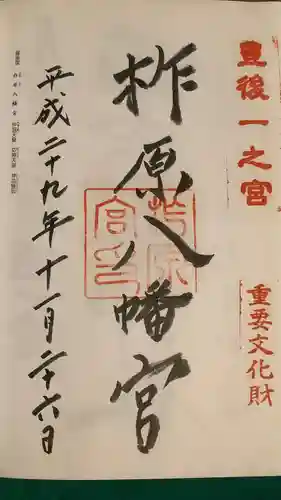 豊後一之宮
重要文化財
柞原八幡宮
平成二十九年十一月二十六日